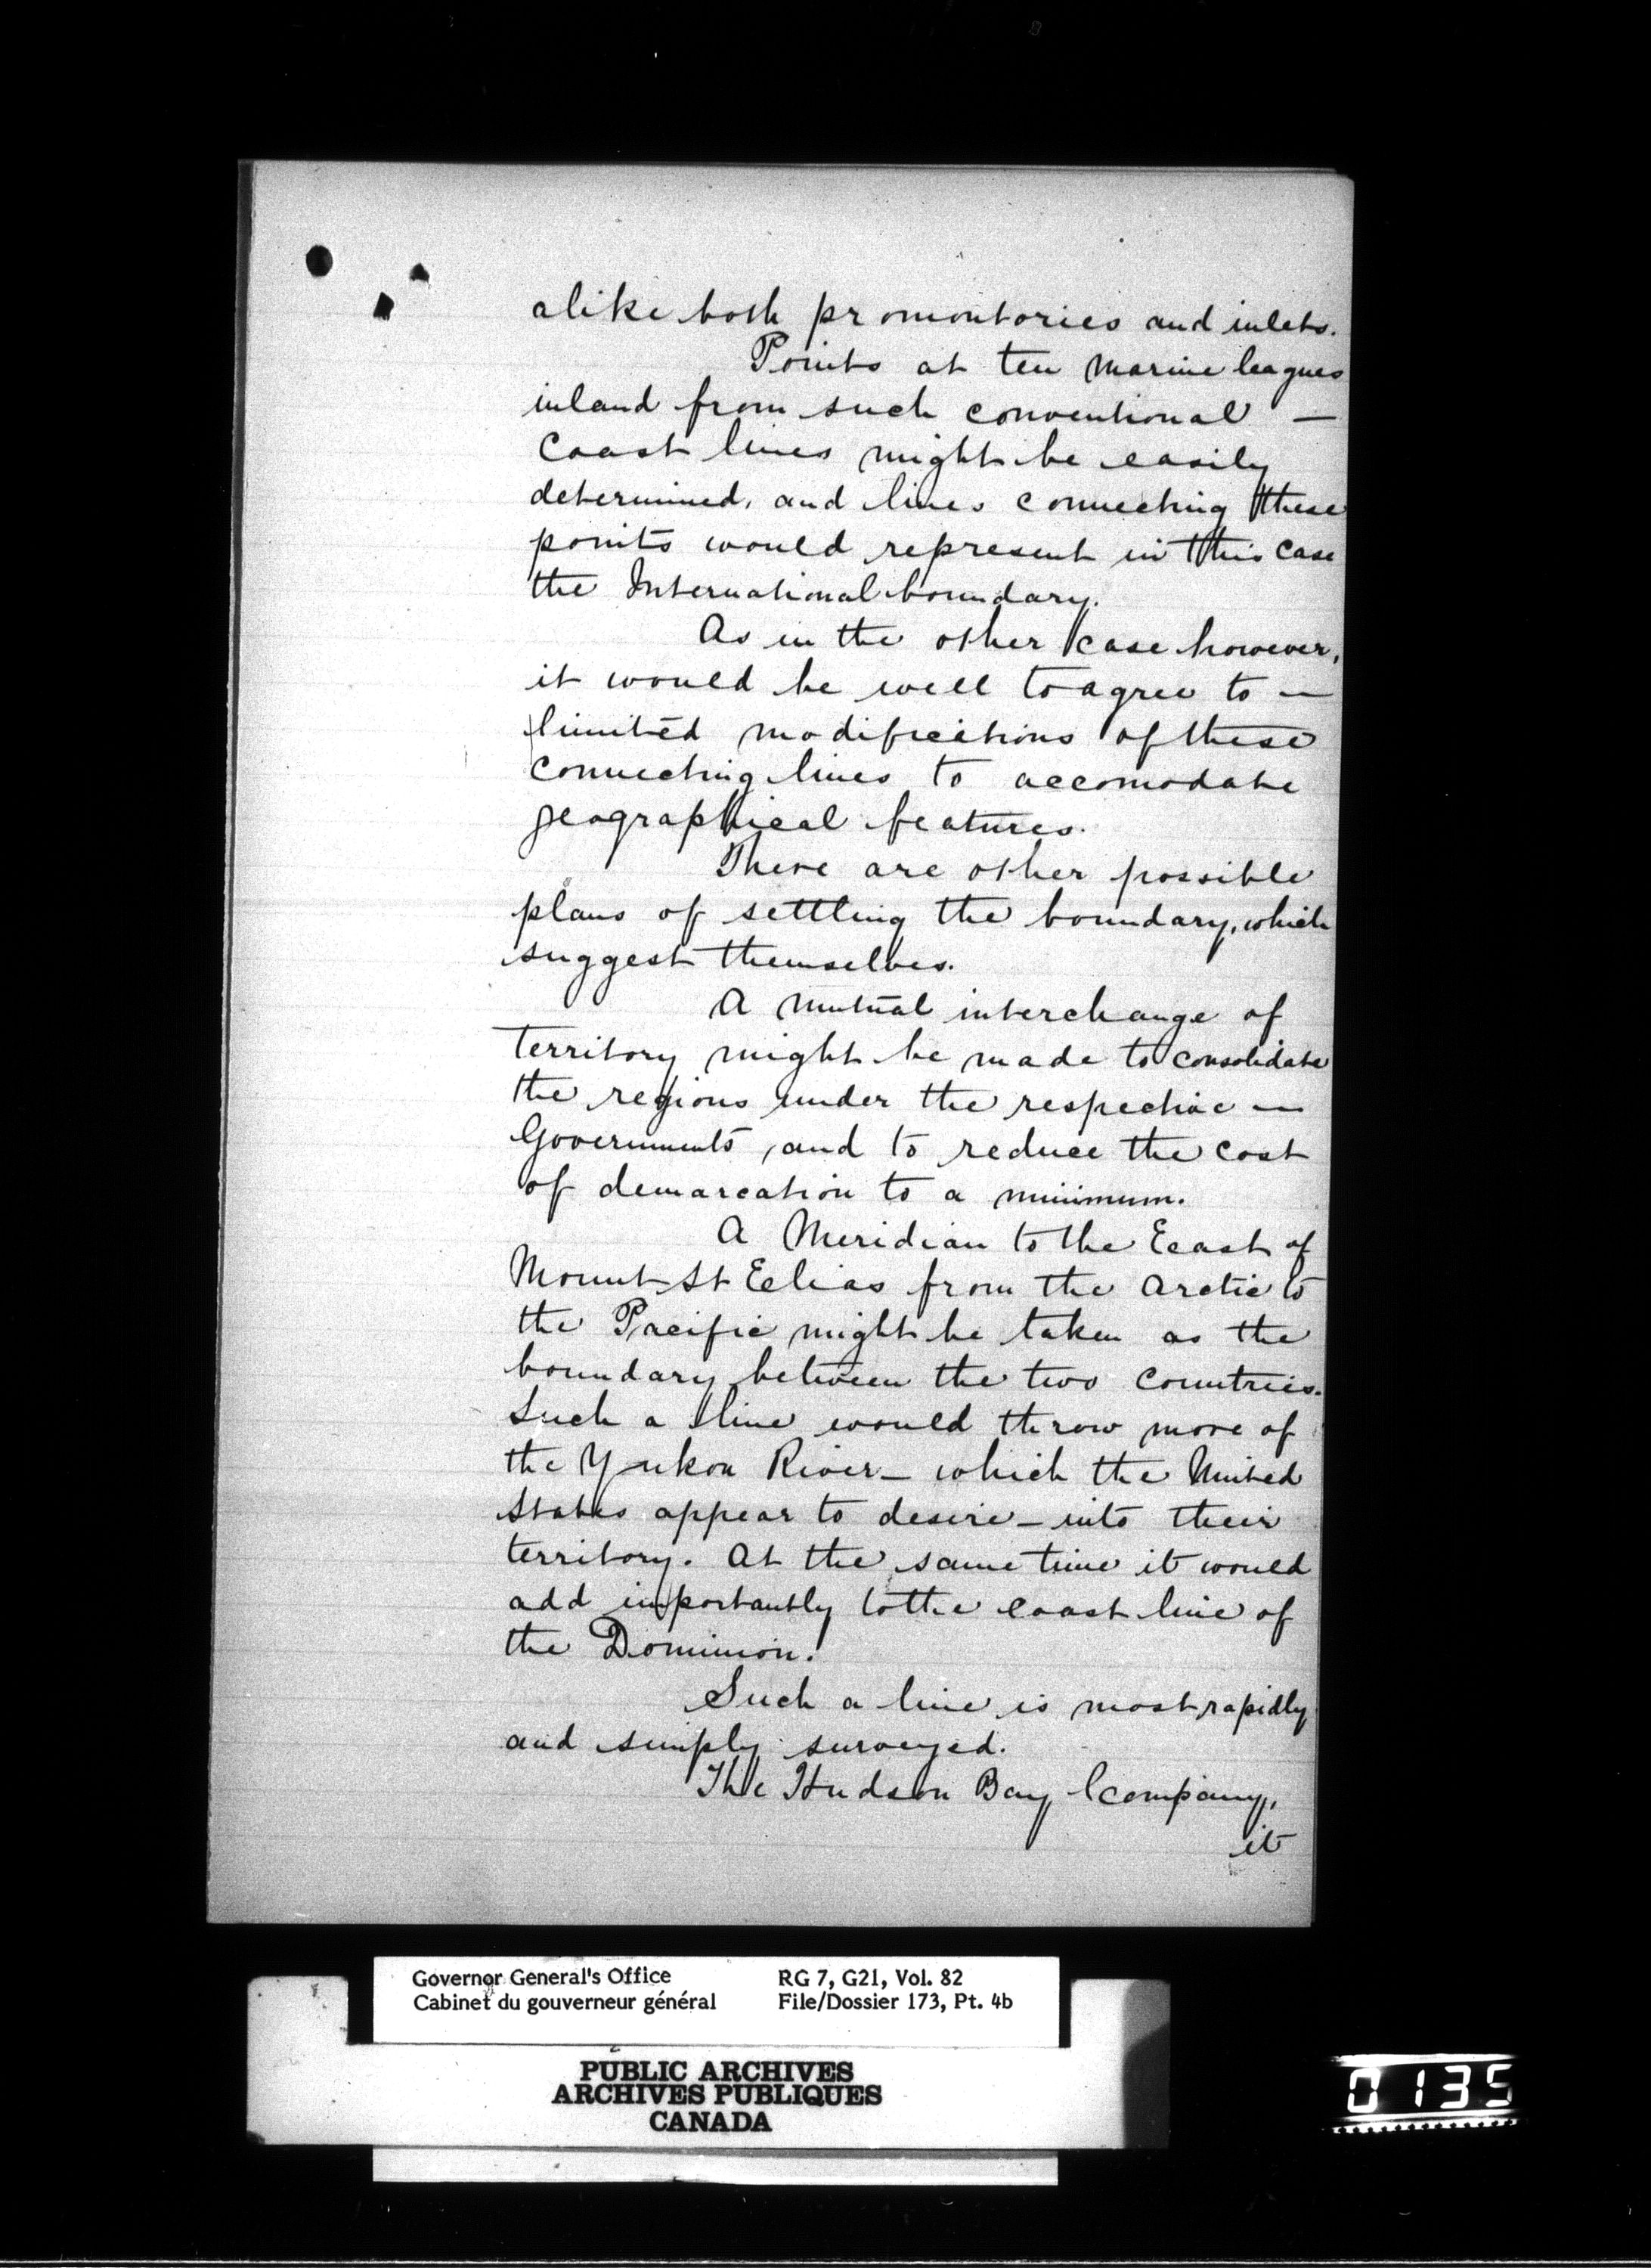 alike both promontories and inlets.
Points at ten marine leagues
inland from such conventional —
coast lines might be easily
determined, and lines connecting these
points would represent in this case
the International boundary.
As in the other case however,
it would be well to agree to —
limited modifications of these
connecting lines to accomodate
geographical features.
There are other possible
plans of settling the boundary, which
suggest themselves.
A mutual interchange of
territory might be made to consolidate
the regions under the respective —
Governments, and to reduce the cost
of demarcation to a minimum.
A Meridian to the East of
Mount St Elias from the Arctic to
the Pacific might be taken as the
boundary between the two countries.
Such a line would throw more of
the Yukon River — which the United
States appear to desire — into their
territory. At the same time it would
add importantly to the coast line of
the Dominion.
Such a line is most rapidly
and simply surveyed.
The Hudson Bay Company,
it
Governor General's Office RG 7, G21, Vol. 82
Cabinet du gouverneur général File/Dossier 173, Pt. 4b
PUBLIC ARCHIVES
ARCHIVES PUBLIQUES
CANADA
0135